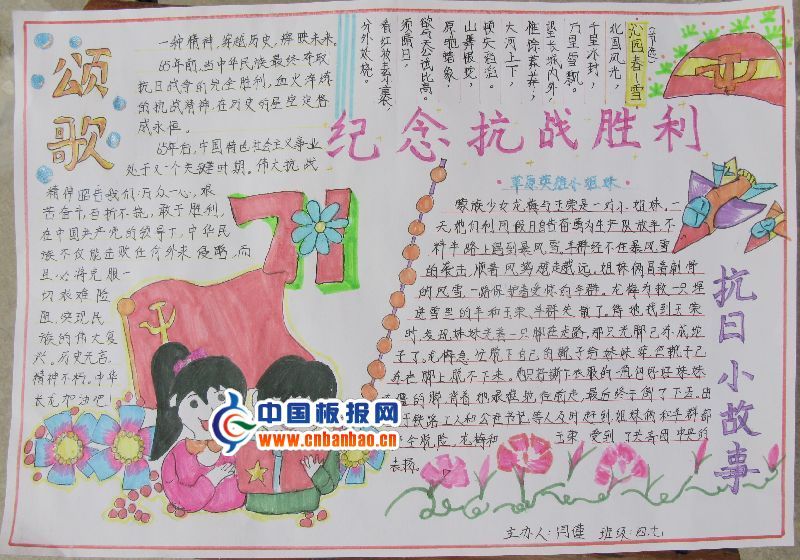 颂歌
一种精神,穿越历史,辉映未来。
65年前,当中华民族最终夺取
抗日战争的完全胜利,血火淬炼
的抗战精神,在历史的星空定格
成永恒。
65年后,中国特色社会主义事业
处于又一个关键时期。伟大抗战
精神昭告我们:万众一心,艰
苦奋斗,百折不挠,敢于胜利,
在中国共产党的领导下,中华民
族不仅能击败任何外来侵略,而
且必将克服一
切艰难险
阻,实现民
族的伟大复
兴。历史无言,
精神不朽。中华
长龙加油吧!
沁园春-雪
(节选)
北国风光
千里冰封,
万里雪飘。
望长城内外,
惟余莽莽,
大河上下,
顿失滔滔。
山舞银蛇,
原驰蜡象,
欲与天公试比高。
须晴日,
看红装素裹,
分外妖娆。
纪念抗战胜利
草原英雄小姐妹
蒙族少女龙梅与玉荣是一对小姐妹,一
天她们利用假日自告奋勇为生产队放羊不
料半路上遇到暴风雪,羊群经不住暴风雪
的袭击,顺着风势越走越远。姐妹俩冒着刺骨
的风雪,一路保护着受惊的羊群。龙梅为救一只埋
进雪里的羊和玉荣,羊群失散了。待她找到玉荣
时,发现妹妹光着一只脚在走路,那只光脚已冻成坨
子了。龙梅急忙脱下自己的靴子给妹妹穿,
进在脚上脱不下来。
去扬。
抗日小故事
71
中国板报网
www.cnbanbao.cn
主办人:闫谨 班级:四